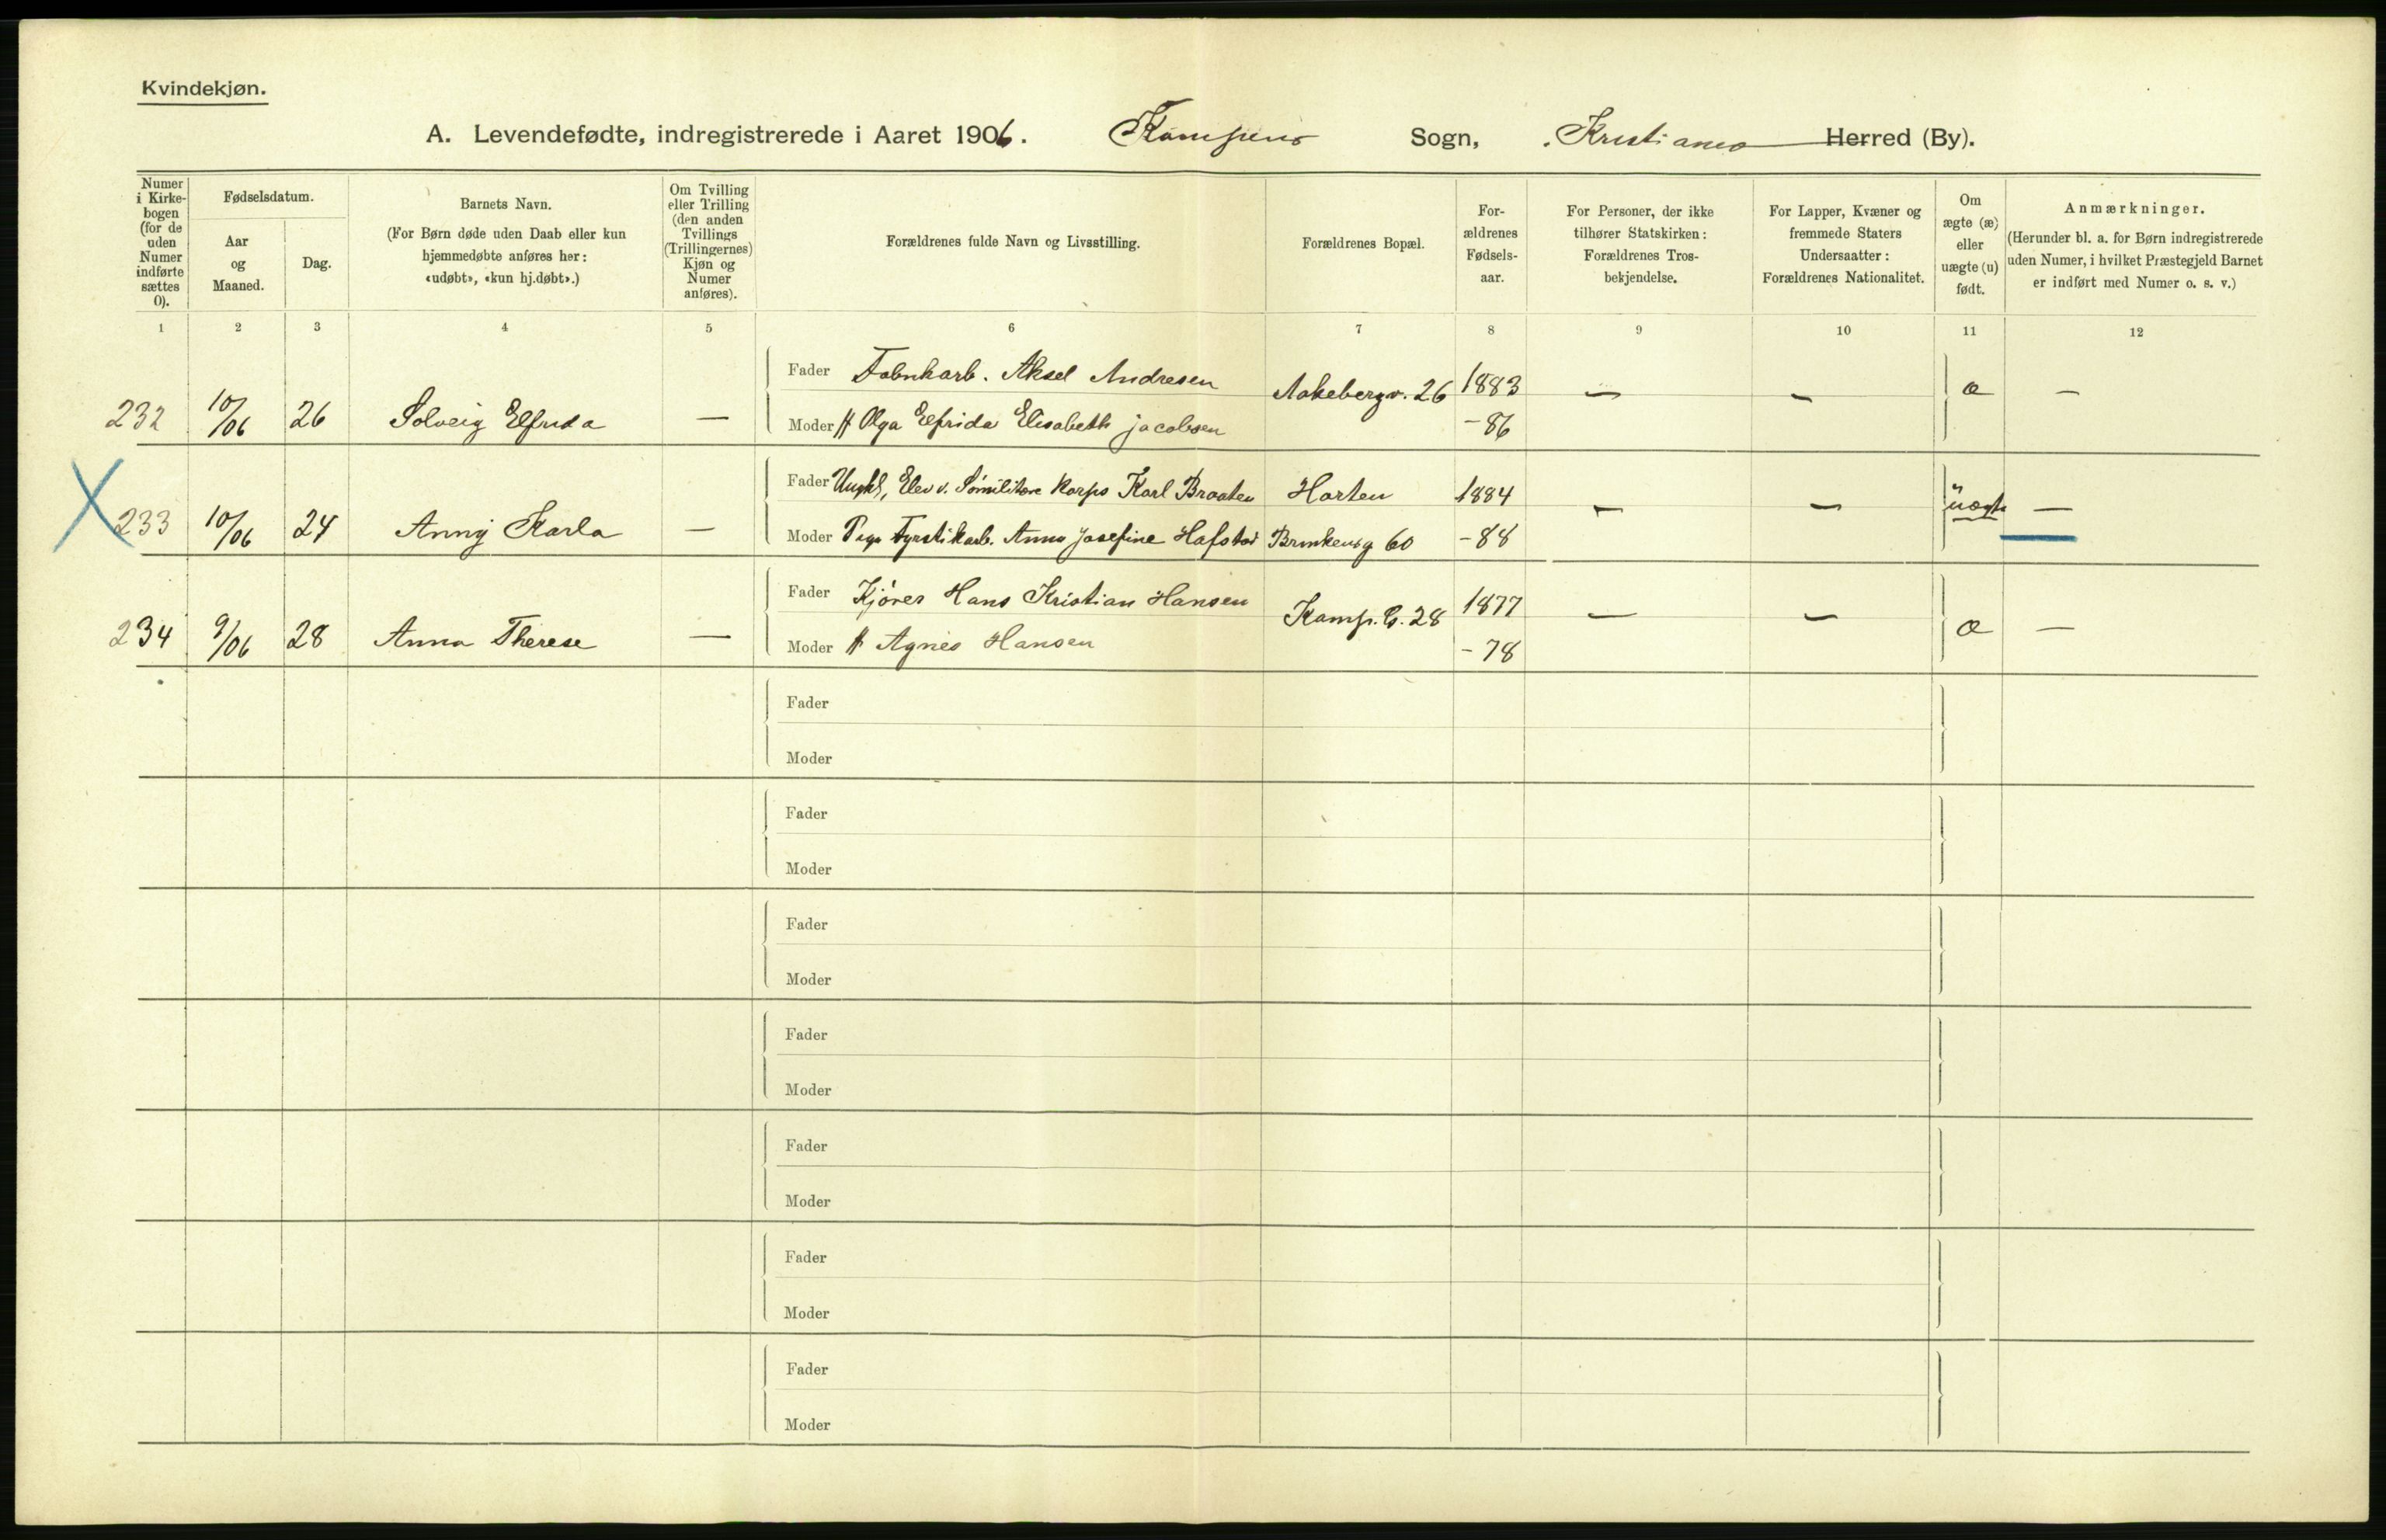 Kvindekjøn.
A. Levendefødte, indregistrerede i Aaret 1906. Kampens Sogn, Kristiania Herred (By).
Numer i Kirkebogen (for de uden Numer indførte sættes 0).
Fødselsdatum.
Aar og Maaned.
Dag.
Barnets Navn.
(For Børn døde uden Daab eller kun hjemmedøbte anføres her: «udøbt», «kun hj.døbt».)
Om Tvilling eller Trilling (den anden Tvillings (Trillingernes) Kjøn og Numer anføres).
Forældrenes fulde Navn og Livsstilling.
Forældrenes Bopæl.
For-ældrenes Fødsels-aar.
For Personer, der ikke tilhører Statskirken: Forældrenes Tros-bekjendelse.
For Lapper, Kvæner og fremmede Staters Undersaatter: Forældrenes Nationalitet.
Om ægte (æ) eller uægte (u) født.
Anmærkninger.
(Herunder bl. a. for Børn indregistrerede uden Numer, i hvilket Præstegjeld Barnet er indført med Numer o. s. v.)
1 2 3 4 5 6 7 8 9 10 11 12
Fader Fabrikarb. Aksel Andresen Aakebergv. 26 1883 — — æ —
232 10/06 26 Solveig Elfrida — Moder H Olga Elfrida Elisabeth Jacobsen - 86
Fader Ungk, Elev v. Sømilitære Korps Karl Braaten Horten 1884 — — uægte —
X 233 10/06 24 Anny Karla — Moder Pige Fyrstikarb. Anna Josefine Hafstad Brinkensg 60 - 88
Fader Kjører Hans Kristian Hansen Kamp. G. 28 1877 — — æ —
234 9/06 28 Anna Therese — Moder H Agnes Hansen - 78
Fader
Moder
Fader
Moder
Fader
Moder
Fader
Moder
Fader
Moder
Fader
Moder
Fader
Moder